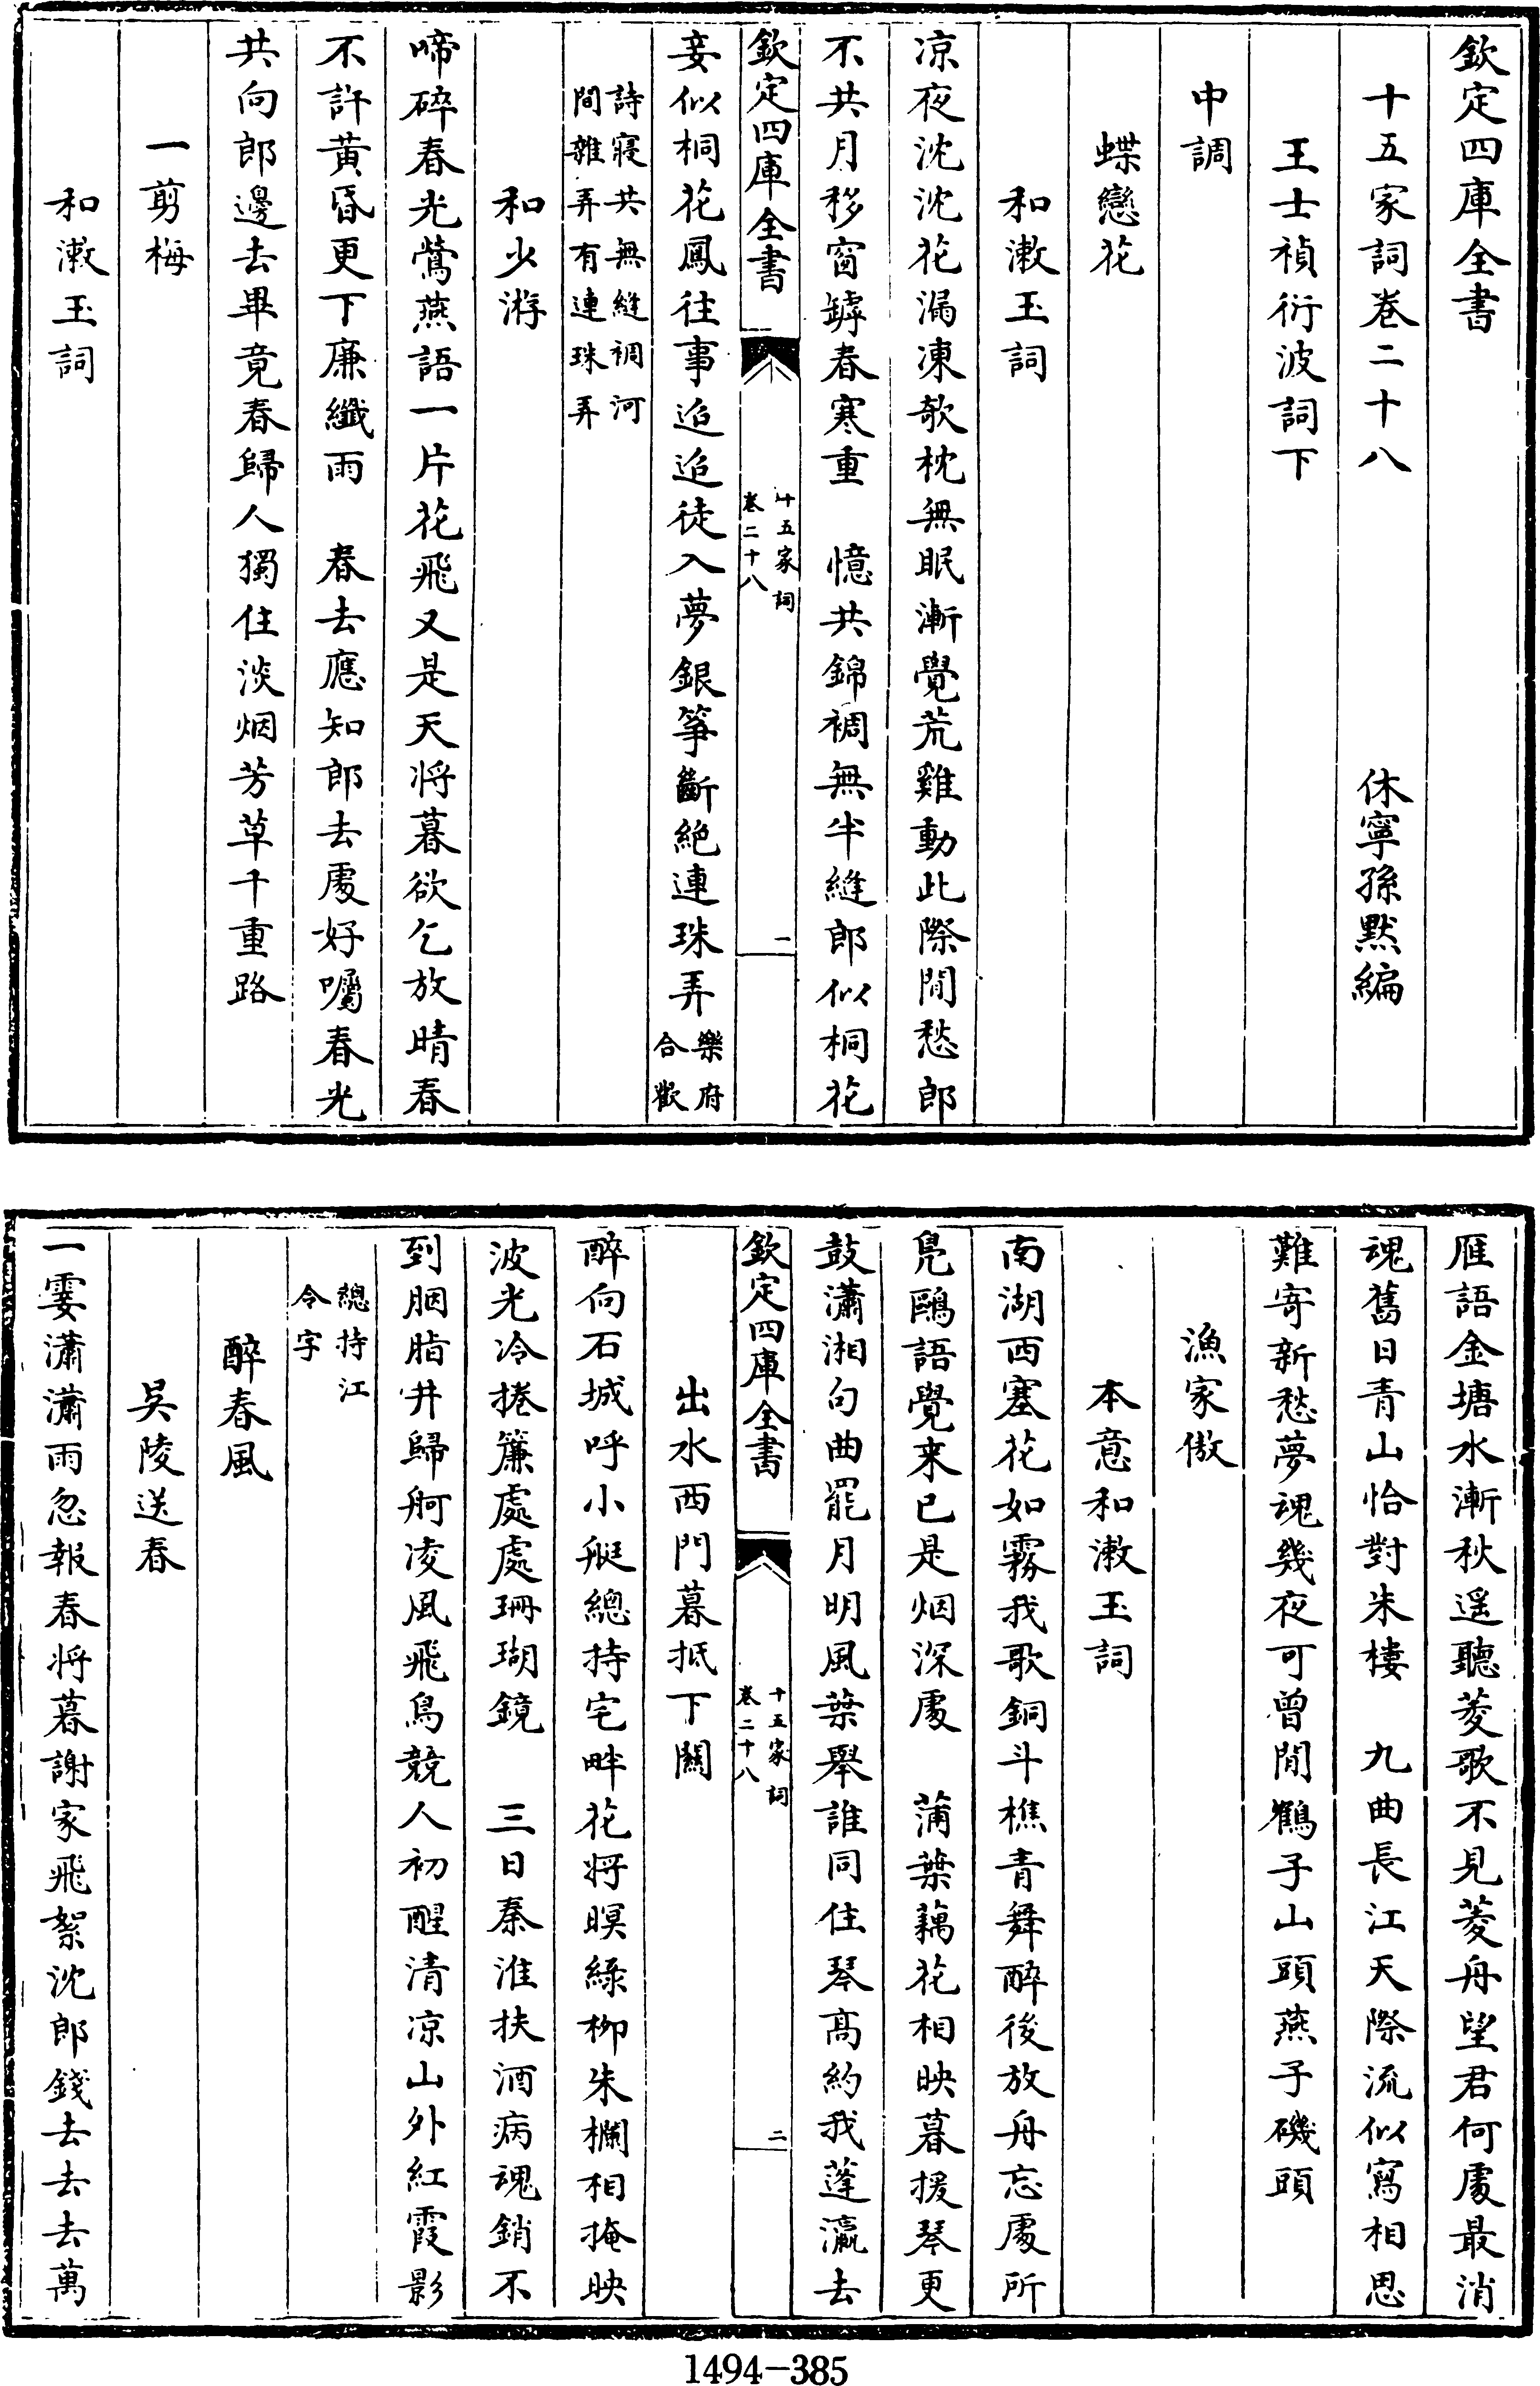 欽定四庫全書
十五家詞卷二十八
休寧孫默編
王士禎衍波詞下
中調
蝶戀花
和漱玉詞
凉夜沈沈花漏凍欹枕無眠漸覺荒雞動此際閒愁郎
不共月移窗罅春寒重　憶共錦裯無半縫郎似桐花
欽定四庫全書
十五家詞
卷二十八
一
妾似桐花鳳往事迢迢徒入夢銀箏斷絶連珠弄
樂府
合歡
詩寢共無縫裯河
間雜弄有連珠弄
和少游
啼碎春光鶯燕語一片花飛又是天将暮欲乞放晴春
不許黄昏更下廉纖雨　春去應知郎去處好囑春光
共向郎邊去畢竟春歸人獨住淡烟芳草千重路
一剪梅
和漱玉詞
雁語金塘水漸秋遥聽菱歌不見菱舟望君何處最消
魂舊日青山恰對朱樓　九曲長江天際流似寫相思
難寄新愁夢魂幾夜可曾閒鶴子山頭燕子磯頭
漁家傲
本意和漱玉詞
南湖西塞花如霧我歌銅斗樵青舞醉後放舟忘處所
鳧鷗語覺来已是烟深處　蒲葉藕花相映暮援琴更
鼓瀟湘句曲罷月明風葉舉誰同住琴髙約我蓬瀛去
欽定四庫全書
十五家詞
卷二十八
二
出水西門暮抵下關
醉向石城呼小艇總持宅畔花將暝緑柳朱欄相掩映
波光冷捲簾處處珊瑚鏡　三日秦淮扶酒病魂銷不
到胭脂井歸舸凌風飛鳥競人初醒清凉山外紅霞影
總持江
令字
醉春風
吳陵送春
一霎瀟瀟雨忽報春将暮謝家飛絮沈郎錢去去去萬
1494-385